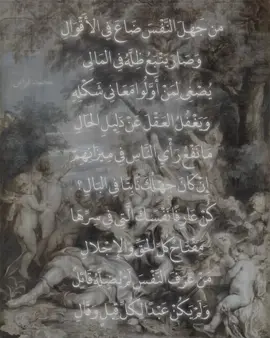 من جهل النفس ضاع في الأقوال
وصار يتبع ظله في المالي
يصغي لمن أولوا معاني شكله
ويغفل العقل عن دليل الحال
ما نفع رأي الناس في ميزانهم
إن كان جهلك ثابتا في البال؟
كن عارفا نفسك التي في سرها
مفتاح كل الحق والإجلال
من عرف النفس لم يضله قائل
ولم يكن عبدا لكل قيل وقال